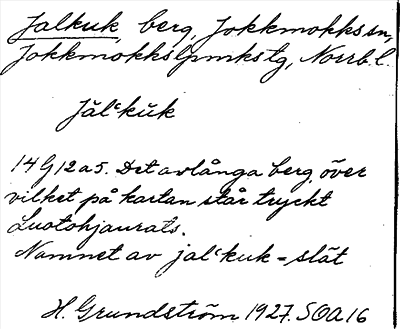 Jalkuk, berg, Jokkmokks sn,
Jokkmokks lpmkstg, Norrb. l.
Jălʿkŭk
14 G 12 a 5. Det avlånga berg, över
vilket på kartan står tryckt
Luotohjaurats.
Namnet av jalʿkuk = slät
H. Grundström 1927. SOA 16